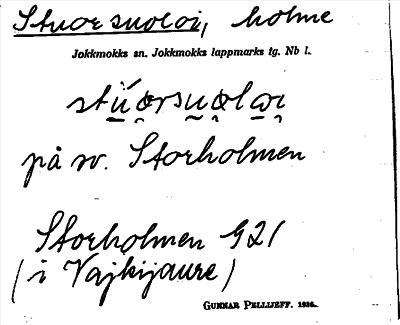 Stuorsuoloi, holme
Jokkmokks sn. Jokkmokks lappmarks tg. Nb l.
på sv. Storholmen
Storholmen G21
(i Vajkijaure)
GUNNAR PELLIJEFF. 1936.